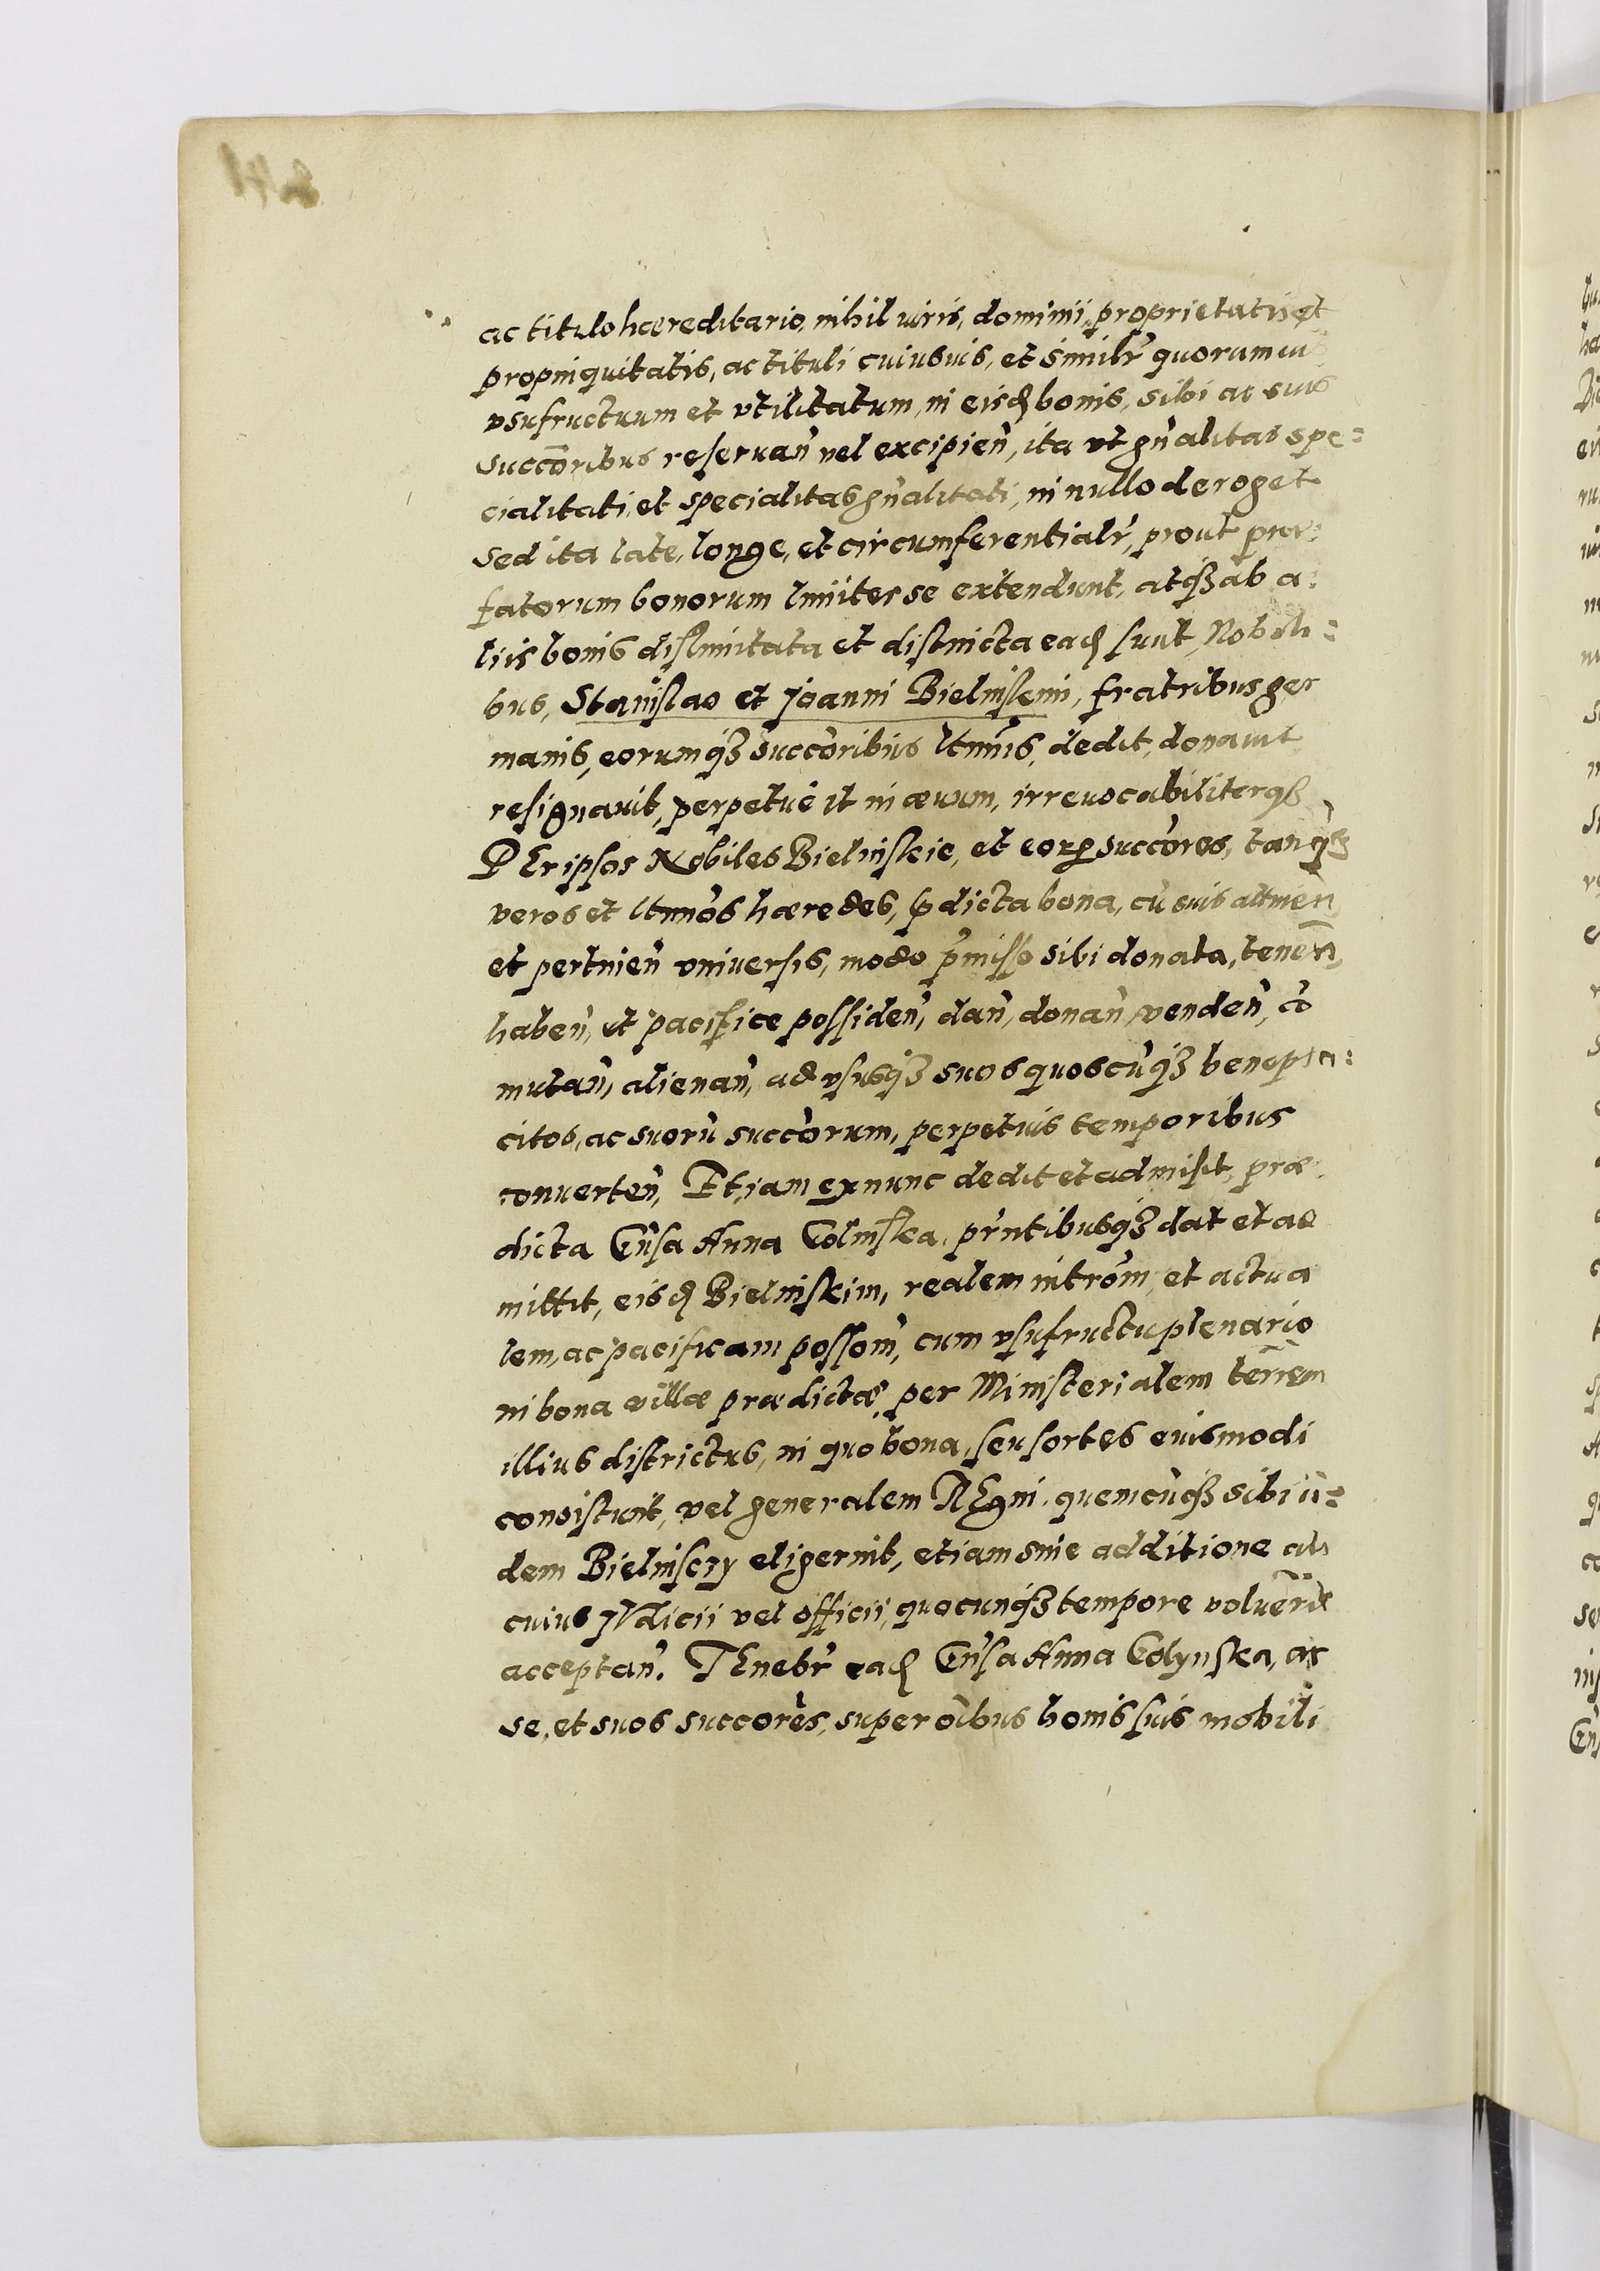 ac titulo hæreditario, nihil iuris, dominii, proprietatis et
propinquitatis, ac tituli cuiusuis, et similr̃ quorumuis
vsufructuum et vtilitatum, in eisd bonis, sibi ac suis
succōribus reseruan̄ vel excipien̄, ita vt gn̄alitas spe=
cialitati, et specialitas gn̄alitati, in nullo deroget
sed ita late, longe, et circumferentialr̃, prout præ=
fatorum bonorum limites se extendunt, atqȝ ab a=
liis bonis dislimitata et distincta ead sunt, Nobili=
bus, Stanislao et Joanni Bielinskim, fratribus ger
manis, eorumqȝ succōribus ltimis, dedit, donauit
resignauit, perpetue et in æuum, irreuocabiliterqȝ
PEr ipsos Nobiles Bielinskie, et eorꝝ succōres, tanqȝ
veros et ltimos hæredes, pdicta bona, cū suis attinen̄
et pertinen̄ vniuersis, modo p̄misso sibi donata, tenen̄,
haben̄, et pacifice possiden̄, dan̄, donan̄, venden̄, cō
mutan̄, alienan̄, ad vsusqȝ suos quoscūqȝ benepla=
citos, ac suorū succōrum, perpetuis temporibus
conuerten̄, Et iam exnunc dedit et admisit, præ
dicta Gn̄sa Anna Golinska, prn̄tibusqȝ dat et ad
mittit, eisd Bielinskim, realem introm̄, et actua
lem, ac pacificam possom̄, cum vsufructu plenario
in bona villæ prædictæ, per Ministerialem terrēm
illius districtus, in quo bona, seu sortes euismodi
consistunt, vel generalem REgni, quemcūqȝ sibi ii=
dem Bielinsczy eligerint, etiam sine additione ali
cuius JVdicii vel officii, quocunqȝ tempore voluer̄it
acceptan̄. TEnebr̃ ead Gn̄sa Anna Golynska, ac
se, et suos succōres, super oībus bonis suis mobili